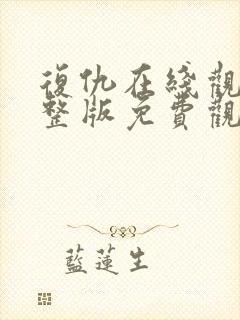 復仇在綫觀
整版免費觀
藍蓮生